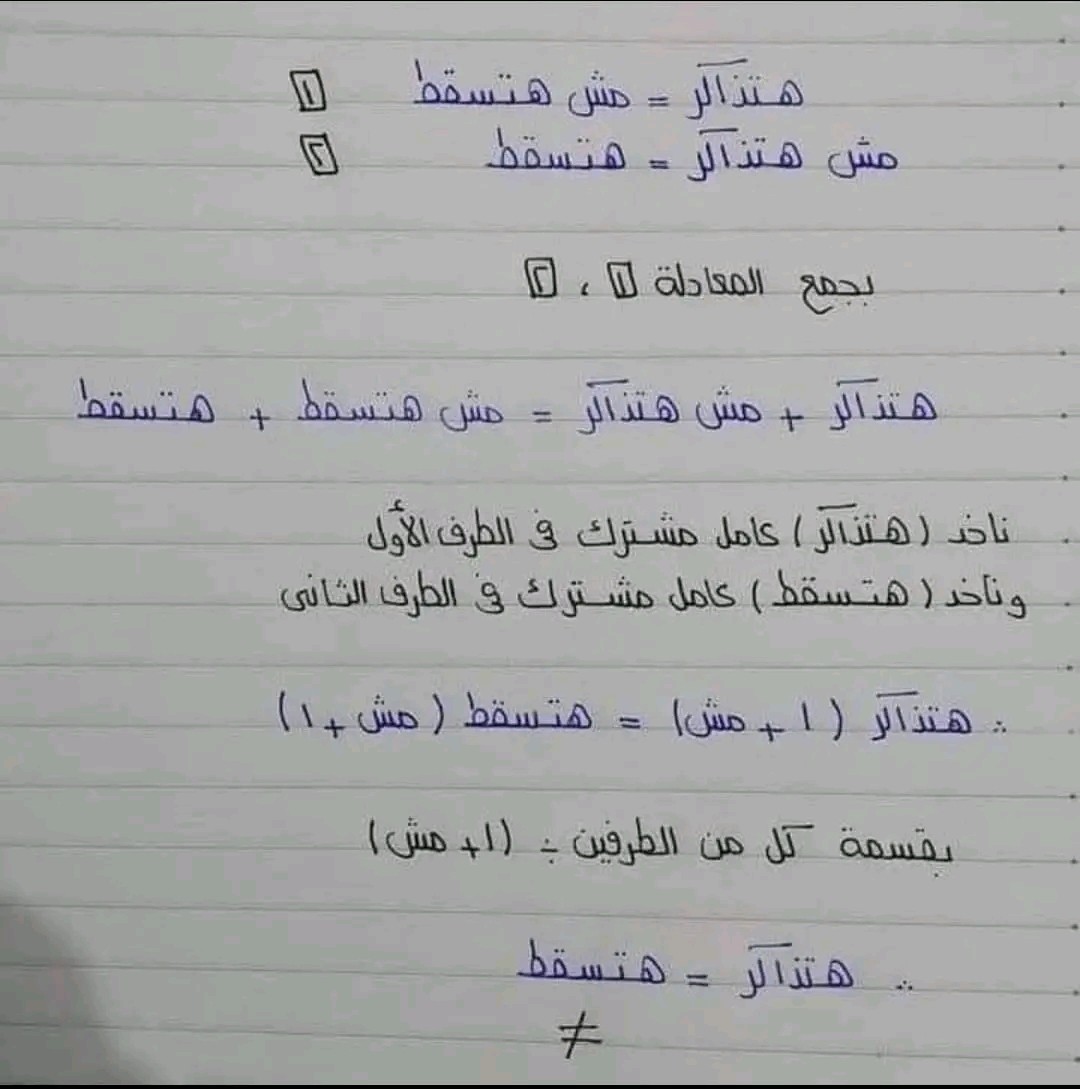 هتذاكر = مش هتسقط ١
مش هتذاكر = هتسقط ٢
بجمع المعادلة ١ ، ٢
هتذاكر + مش هتذاكر = مش هتسقط + هتسقط
ناخد (هتذاكر) عامل مشترك فى الطرف الأول
وناخد (هتسقط) عامل مشترك فى الطرف الثانى
∴ هتذاكر (١ + مش) = هتسقط (مش + ١)
بقسمة كل من الطرفين ÷ (١ + مش)
∴ هتذاكر = هتسقط
≠